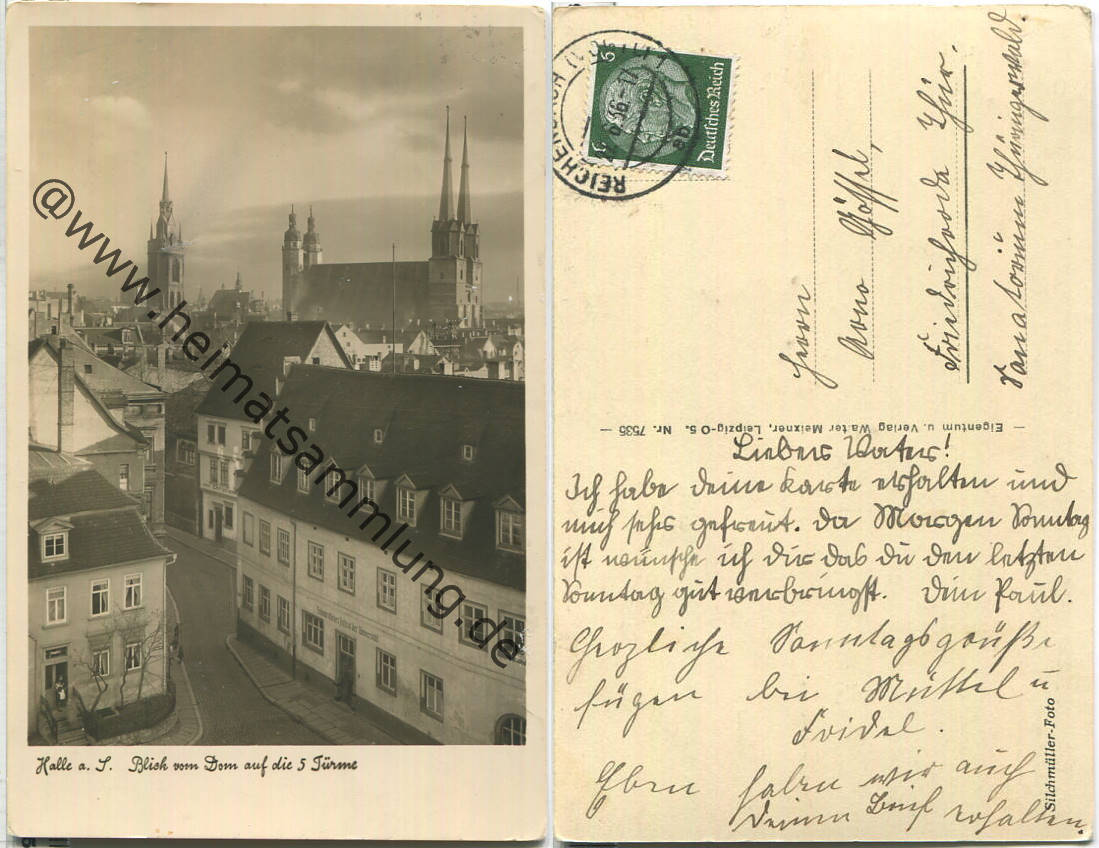 @www.heimatsammlung.de
Halle a. S. Blick vom Dom auf die 5 Türme
REICHENBACH (VOGTL)
6.36-17
ab
6 6
Deutsches Reich
Herrn
Arno
Friedrichroda Thür.
Sanatorium Thüringerwald.
— Eigentum u. Verlag Walter Meixner, Leipzig-O 5. Nr. 7535 —
Lieber Vater!
Ich habe deine Karte erhalten und
mich sehr gefreut. da Morgen Sonntag
ist wünsche ich dir das du den letzten
Sonntag gut verbringst. Dein Paul.
Herzliche Sonntagsgrüße
fügen bei Muttel u
Fridel.
Eben haben wir auch
deinen Brief erhalten.
Silchmüller-Foto